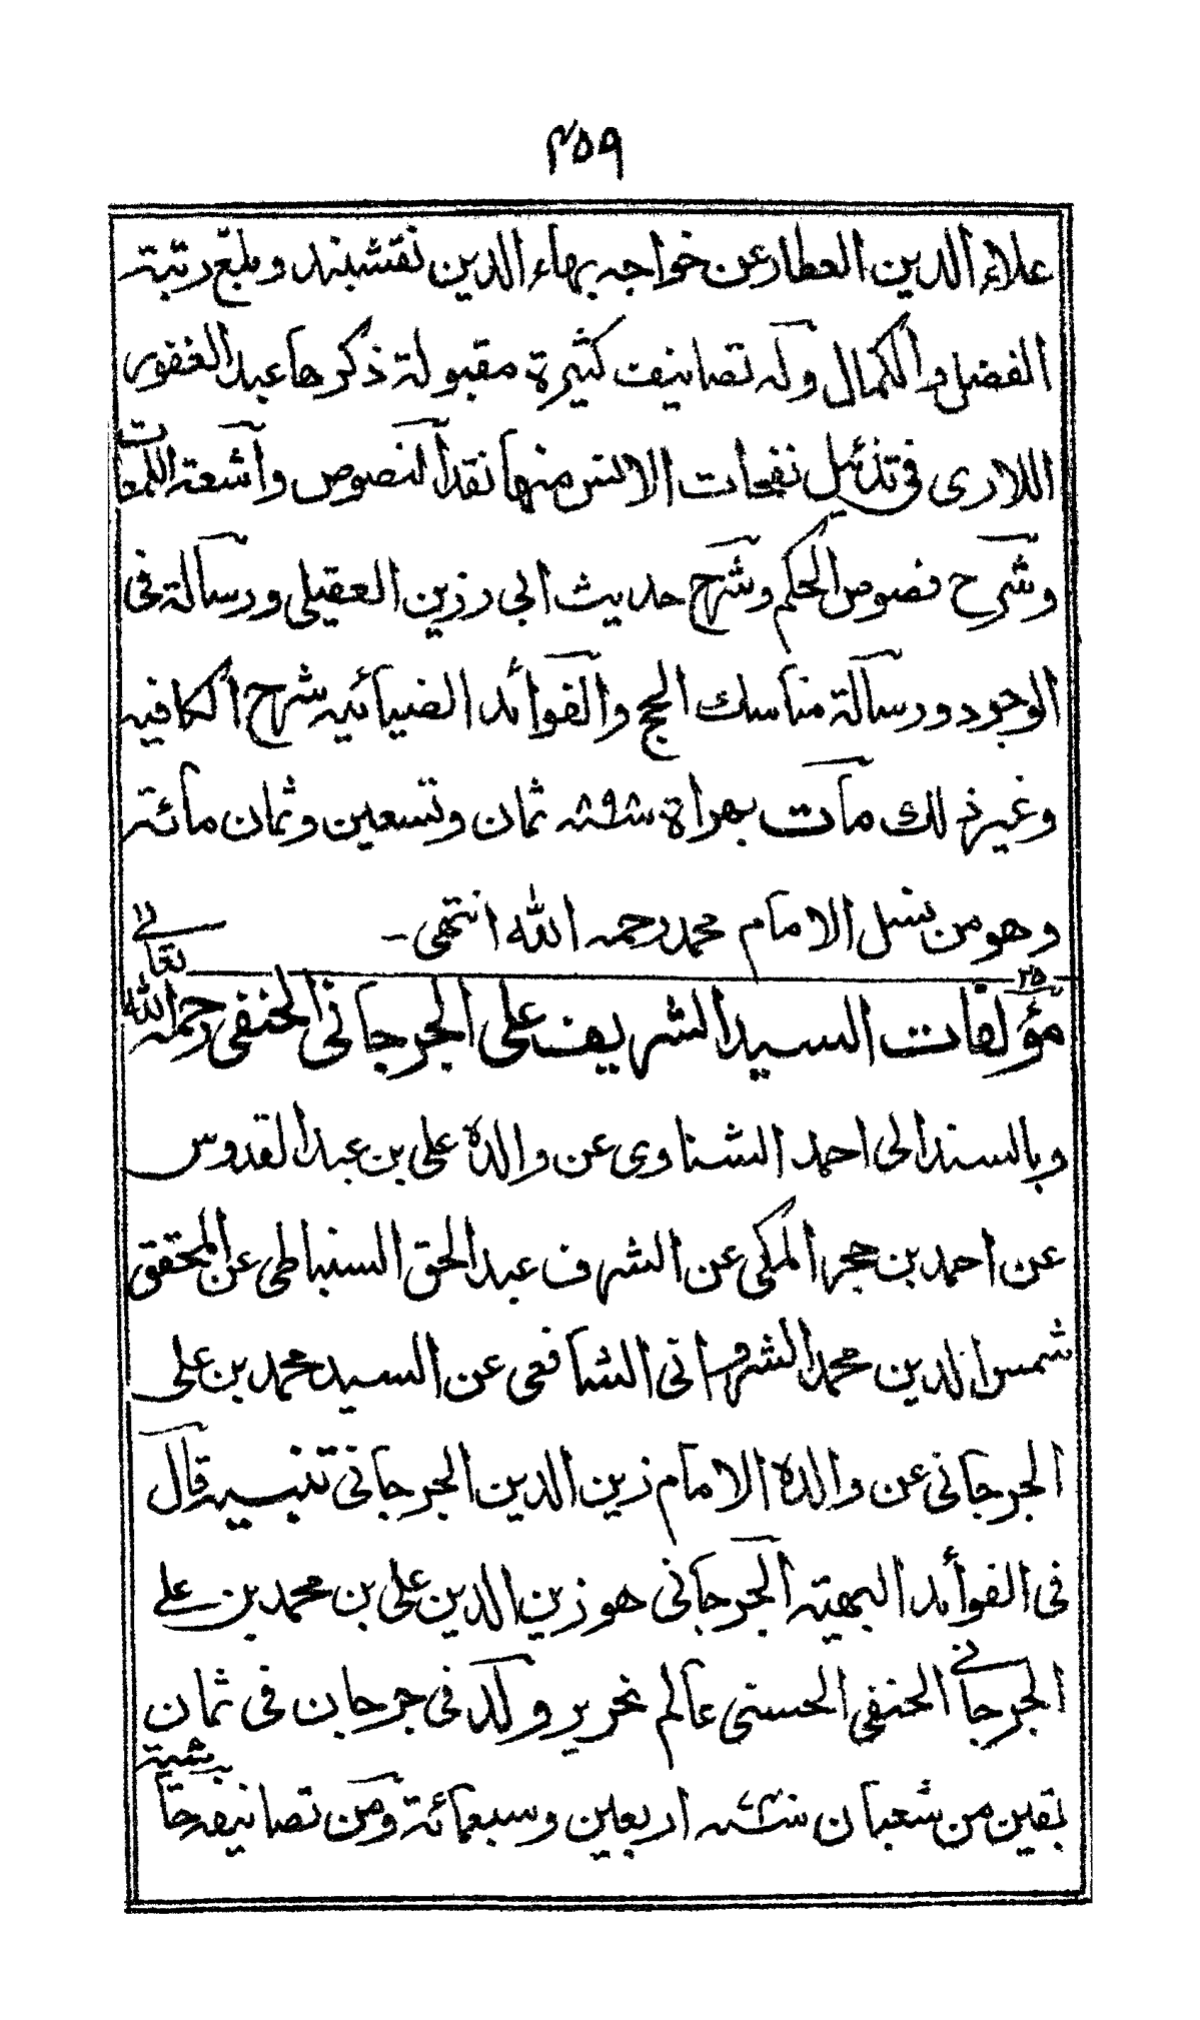 ۴۵۹
علاء الدين العطار عن خواجه بهاء الدين نقشبند و بلغ رتبة
الفضل والكمال وله تصانيف كثيرة مقبولة ذكرها عبد الغفور
اللاري في تذئيل نفحات الانس منها نقد النصوص وآشعة اللمعات
وشرح فصوص الحكم وشرح حديث ابي رزين العقيلي ورسالة في
الوجود ورسالة مناسك الحج والفوائد الضيائيه شرح الكافيه
وغير ذلك مات بهراة ۸۹۸ ثمان وتسعين وثمان مائة
وهو من نسل الامام محمد رحمه الله انتهى -
۲۵
مؤلفات السيد الشريف علي الجرجاني الحنفي رحمه الله تعالى
وبالسند الى احمد الشناوي عن والده علي بن عبد القدوس
عن احمد بن حجر المكي عن الشرف عبد الحق السنباطي عن المحقق
شمس الدين محمد الشرواني الشافعي عن السيد محمد بن علي
الجرجاني عن والده الامام زين الدين الجرجاني تنبيه قال
في الفوائد البهية الجرجاني هو زين الدين علي بن محمد بن علي
الجرجاني الحنفي الحسني عالم نحرير ولد في جرجان في ثمان
بقين من شعبان اربعين وسبعمائة ومن تصانيفه حاشية